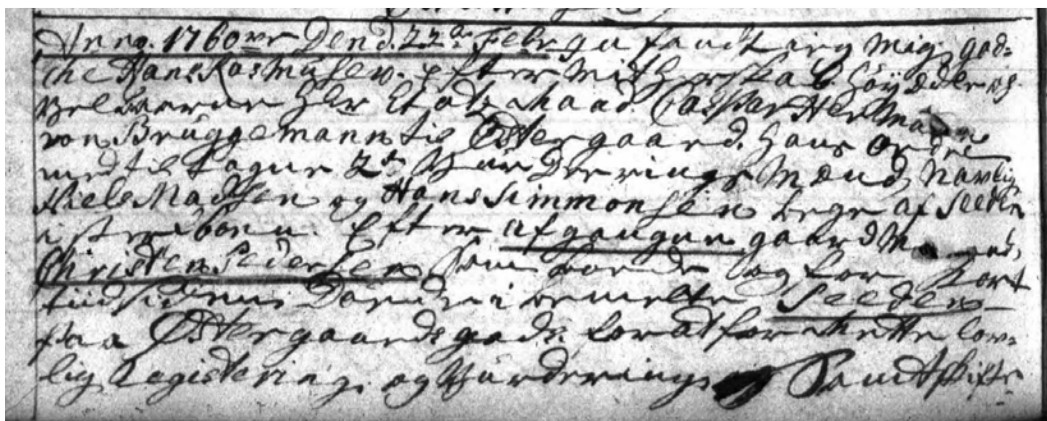 Anno. 1760 Den d. 22de Febr fandt ieg mig, god¬
che Hans Rasmusen. efter mit Herskab Høyædle og
Velbaarne Hr Etatz Raad Casper Herman
von Brüggemann til Østergaard. Hans orden
med til tagne 2de Vurderings Mænd, Navlig
Niels Madsen og Hans Simmonsen bege af Seeden
i sterboen Efter afgangne gaardMand,
Christen Pedersen som boede og for kort
tiid siden Døende i bemelte Seeden
paa Østergaards gods for at forrette lov¬
lig Registering og Vurdering og Samt skifte